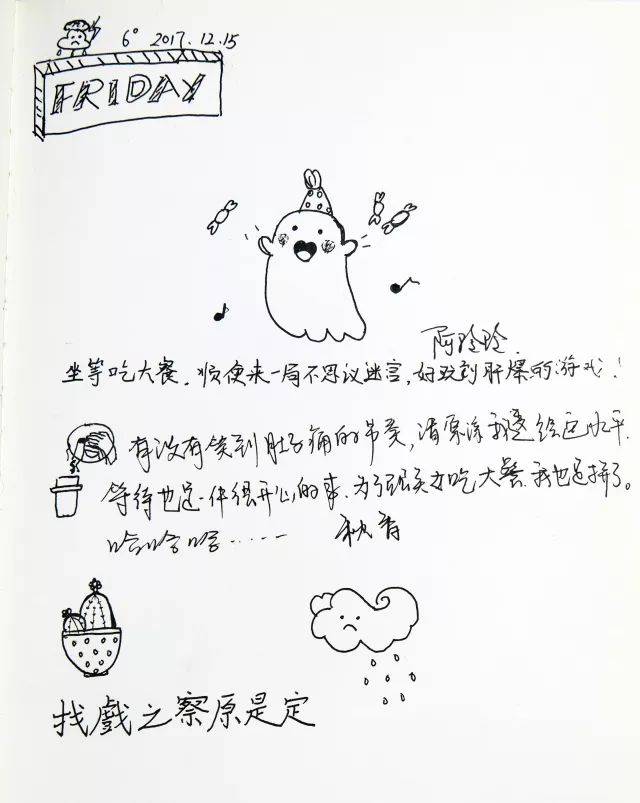 6° 2017.12.15
FRIDAY
阿玲玲
坐等吃大餐，顺便来一局不思议迷宫，好玩到肝爆的游戏！
有没有笑到肚子痛的节奏，请原谅我这绘画水平.
等待也是一件很开心的事.为了吃大餐.我也是拼了。
哈哈哈…… 秋香
找戲之察原是定